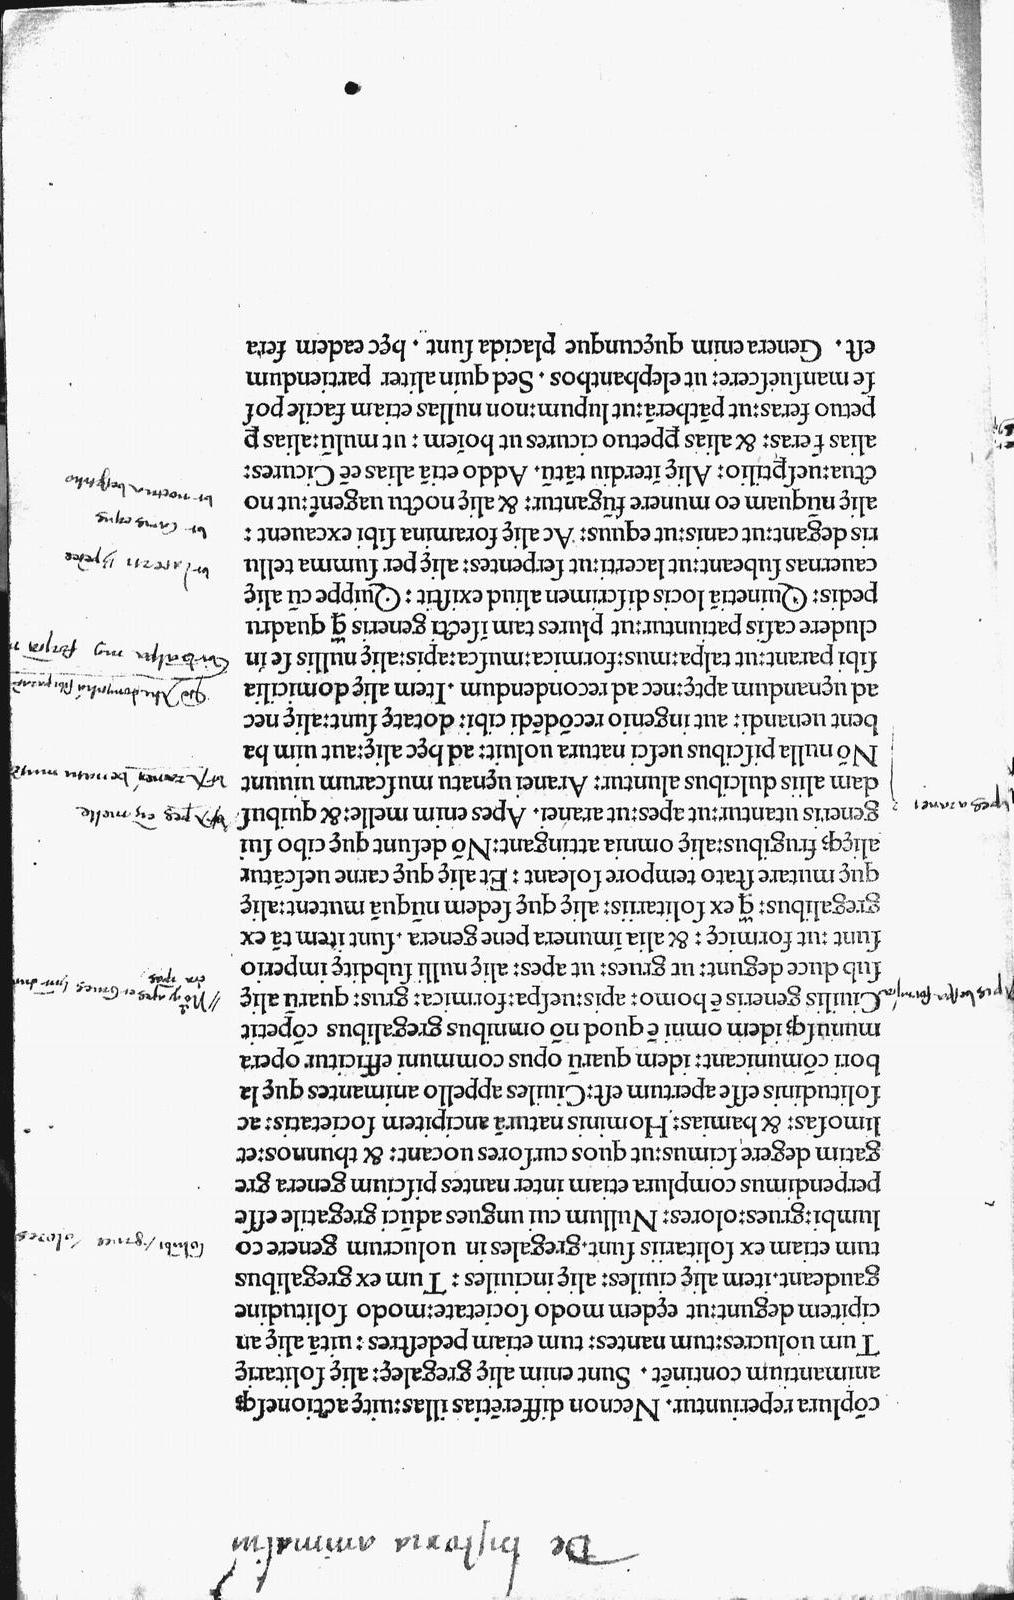 De hystoria animaliũ
cõplura reperiuntur. Necnon differẽtias illas:uitę actionesq;
animantium continẽt . Sunt enim alię gregales: alię solitarię
Tum uolucres:tum nantes: tum etiam pedestres : uitã alię an
cipitem degunt:ut eędem modo societate:modo solitudine
gaudeant.item alię ciuiles: alię inciuiles : Tum ex gregalibus
tum etiam ex solitariis sunt.gregales in uolucrum genere co
lumbi:grues:olores: Nullum cui ungues adũci gregatile esse
perpendimus complura etiam inter nantes piscium genera gre
gatim degere scimus:ut quos cursores uocant: & thunnos:et
limosas: & hamias: Hominis naturã ancipitem societatis: ac
solitudinis esse apertum est:Ciuiles appello animantes quę la
bori cõmunicant: idem quarũ opus communi efficitur opera
munusq; idem omni ẽ quod nõ omnibus gregalibus cõpetit
Ciuilis generis ẽ homo: apis:uespa:formica: grus: quarũ alię
sub duce degunt: ut grues: ut apes: alię nulli subditę imperio
sunt :ut formicę : & alia ĩmunera pene genera .sunt item tã ex
gregalibus: q̃ ex solitariis: alię quę sedem nũquã mutent:alię
quę mutare stato tempore soleant : Et alię quę carne uescãtur
alięq; frugibus:alię omnia attingant:Nõ desunt quę cibo sui
generis utantur:ut apes:ut aranei. Apes enim melle:& quibus
dam aliis dulcibus aluntur: Aranei uęnatu muscarum uiuunt
Nõ nulla piscibus uesci natura uoluit: ad hęc alię:aut uim ha
bent uenandi: aut ingenio recõdẽdi cibi: dotatę sunt:alię nec
ad uęnandum aptę:nec ad recondendum .Item alię domicilia
sibi parant:ut talpa:mus:formica:musca:apis:alię nullis se in
cludere casis patiuntur:ut plures tam isecti generis q̃ quadru
pedis: Quinetiã locis discrimen aliud existit : Quippe cũ alię
cauernas subeant:ut lacerti:ut serpentes: alię per summa tellu
ris degant:ut canis:ut equus: Ac alię foramina sibi excauent :
alię nũquam eo munere fũgantur: & alię noctu uagent̃:ut no
ctua:uesp̃tilio: Alię ĩterdiu tãtũ. Addo etiã alias eẽ Cicures:
alias feras: & alias ꝑpetuo cicures ut hoiẽm : ut mulũ:alias ꝑ
petuo feras:ut pãtherã:ut lupum:non nullas etiam facile pos
se mansuescere: ut elephanthos . Sed quin aliter partiendum
est . Genera enim quęcunque placida sunt . hęc eadem fera
Colũbi / grues / olores
Apis vespa formica
Apes aranei